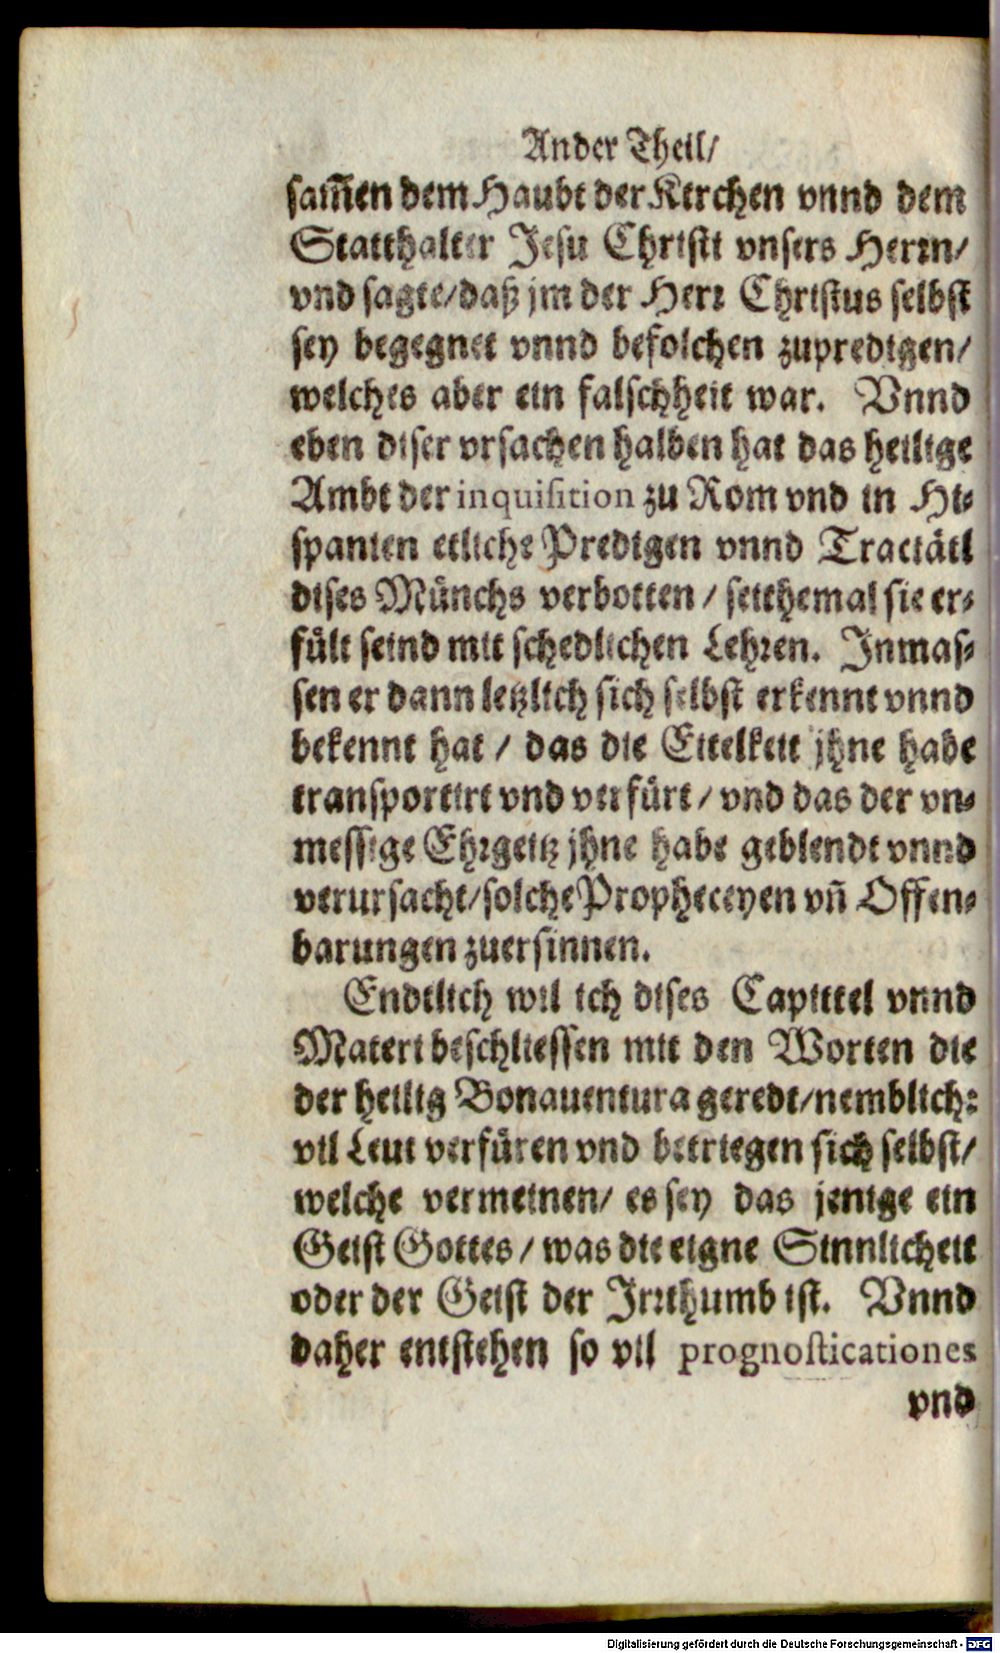 Ander Theil/
sam̃en dem Haubt der Kirchen vnnd dem
Statthalter Jesu Christi vnsers Herꝛn/
vnd sagte/daß jm der Herꝛ Christus selbst
sey begegnet vnnd befolchen zupredigen/
welches aber ein falschheit war. Vnnd
eben diser vrsachen halben hat das heilige
Ambt der inquisition zu Rom vnd in Hi-
spanien etliche Predigen vnnd Tractätl
dises Münchs verbotten / seithemal sie er-
fült seind mit schedlichen Lehꝛen. Inmas-
sen er dann letzlich sich selbst erkennt vnnd
bekennt hat / das die Eitelkeit jhne habe
transportirt vnd verfürt / vnd das der vn-
messige Ehꝛgeitz jhne habe geblendt vnnd
verursacht/solche Propheceyen vn̄ Offen-
barungen zuersinnen.
Endtlich wil ich dises Capittel vnnd
Materi beschliessen mit den Worten die
der heilig Bonauentura geredt/nemblich:
vil Leut verfüren vnd betriegen sich selbst/
welche vermeinen/ es sey das jenige ein
Geist Gottes / was die eigne Sinnlicheit
oder der Geist der Irꝛthumb ist. Vnnd
daher entstehen so vil prognosticationes
vnd
Digitalisierung gefördert durch die Deutsche Forschungsgemeinschaft - DFG